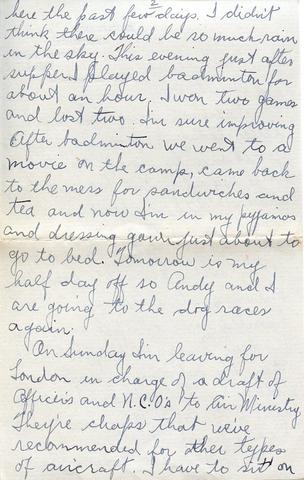 2
here the past few days. I didn't
think there could be so much rain
in the sky. This evening just after
supper I played badminton for
about an hour. I won two games
and lost two. I'm sure improving
After badminton we went to a
movie on the camp, came back
to the mess for sandwiches and
tea and now I'm in my pyjamas
and dressing gown just about to
go to bed. Tomorrow is my
half day off so Andy and I
are going to the dog races
again.
On Sunday I'm leaving for
London in charge of a draft of
Officers and N.C.O's to Air Ministry
They're chaps that we've
recommended for other types
of aircraft. I have to sit on